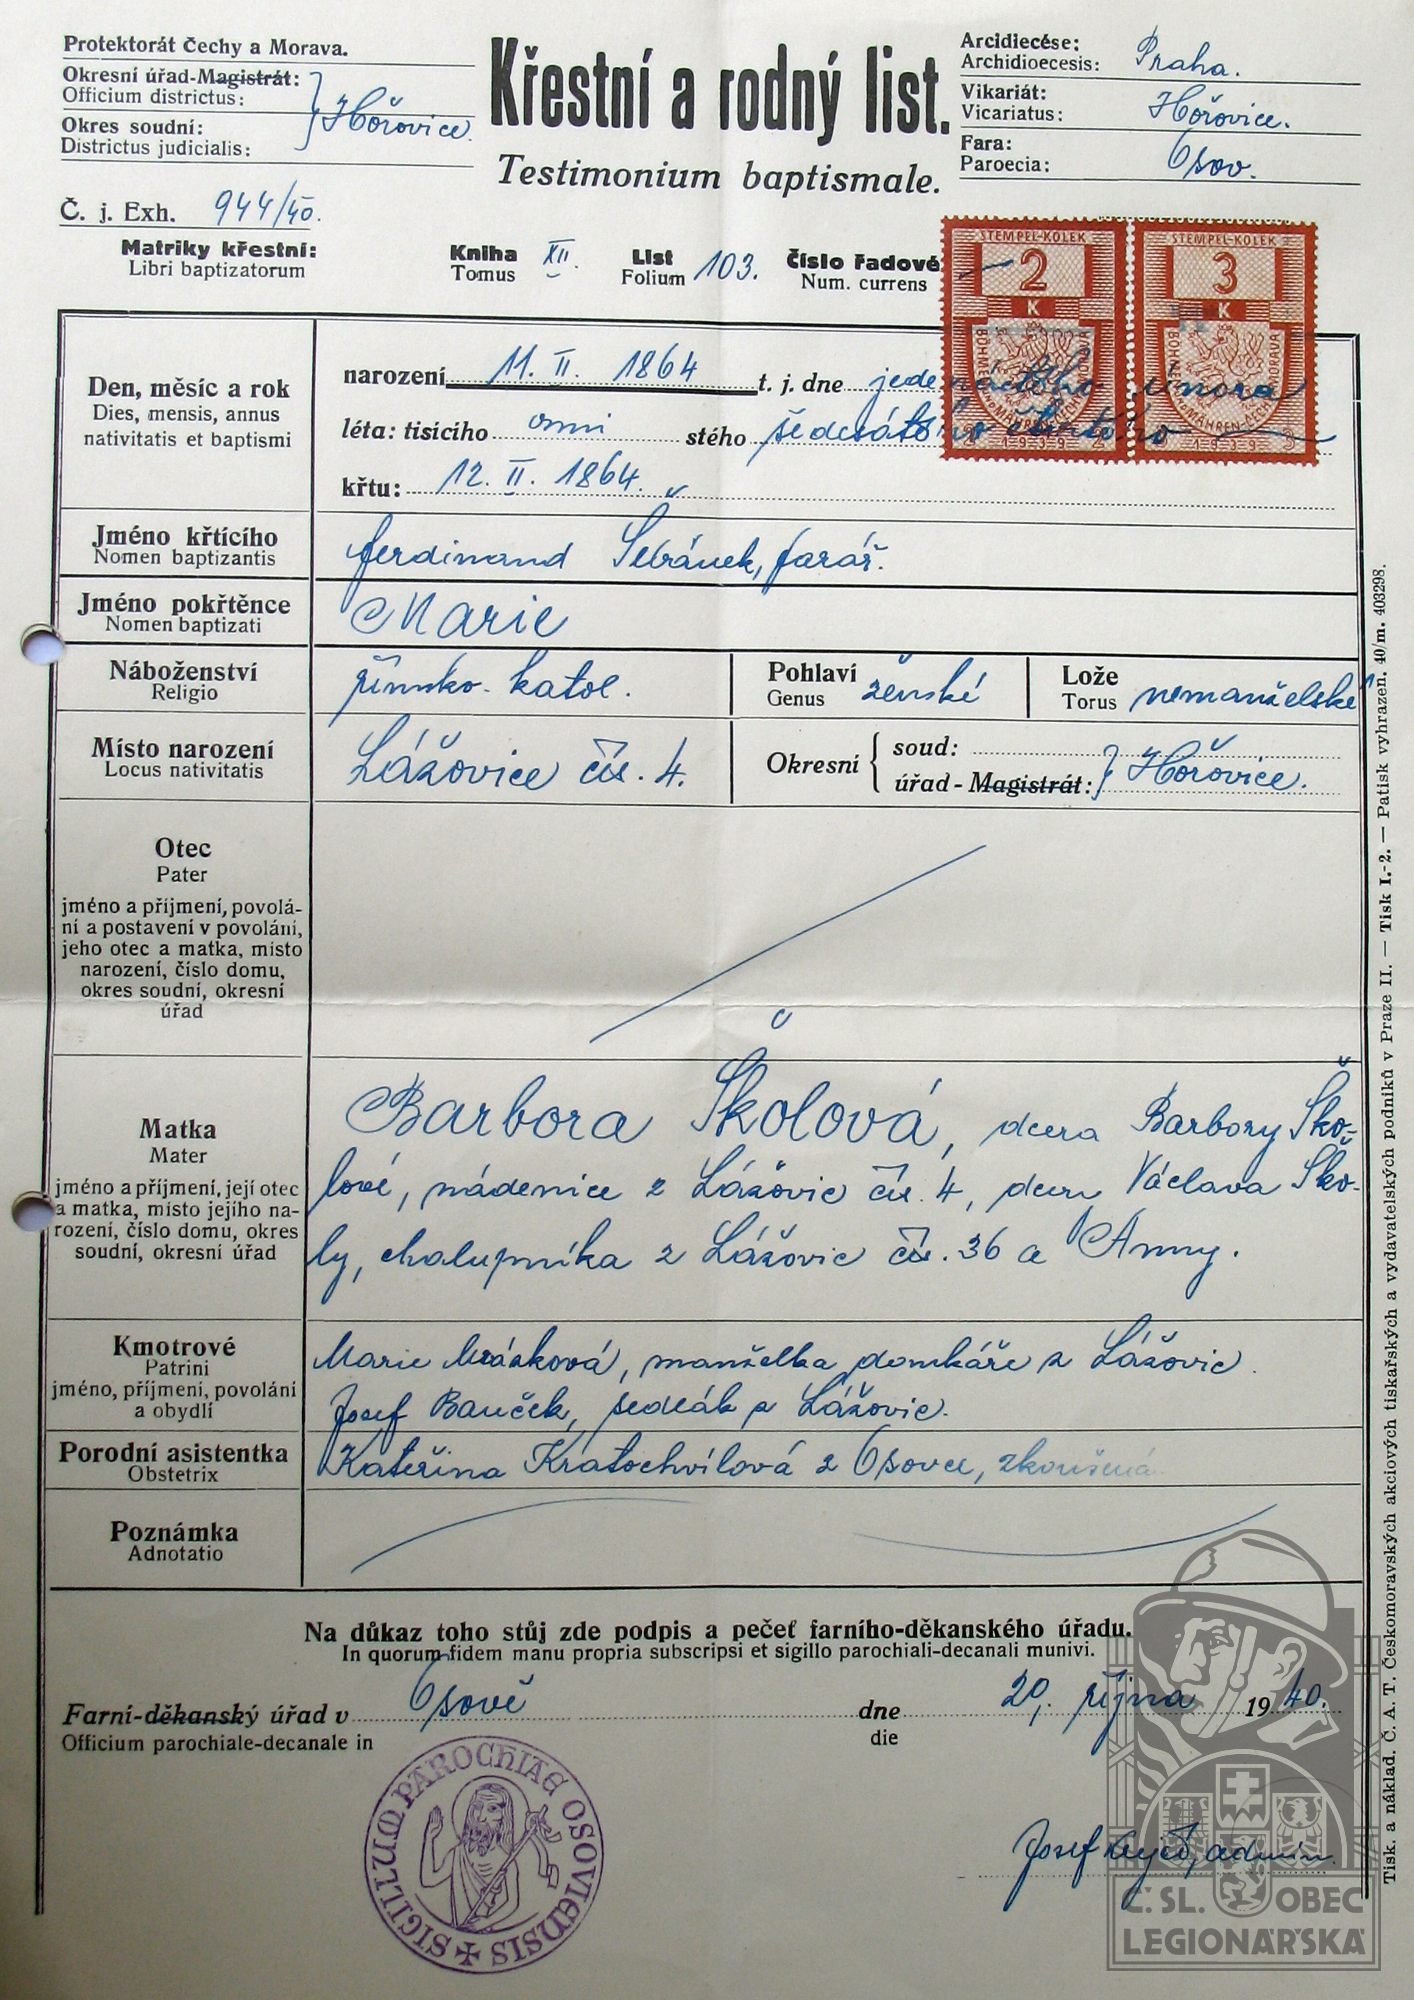 Protektorát Čechy a Morava.
Okresní úřad-Magistrát:
Officium districtus:
Okres soudní:
Districtus judicialis:
Hořovice
Č. j. Exh. 944/40.
Křestní a rodný list.
Testimonium baptismale.
Arcidiecése:
Archidioecesis: Praha.
Vikariát:
Vicariatus: Hořovice.
Fara:
Paroecia: Osov.
Matriky křestní: Kniha XII. List 103. Číslo řadové
Libri baptizatorum Tomus Folium Num. currens
STEMPEL-KOLEK STEMPEL-KOLEK
2 3
K K
Den, měsíc a rok
Dies, mensis, annus
nativitatis et baptismi
narození 11. II. 1864 t. j. dne jedenáctého února
léta: tisícího osmi stého šedesátého čtvrtého
křtu: 12. II. 1864.
Jméno křtícího
Nomen baptizantis
Ferdinand Šebánek, farář.
Jméno pokřtěnce
Nomen baptizati
Marie
Náboženství
Religio
římsko-katol.
Pohlaví
Genus ženské
Lože
Torus nemanželské
Místo narození
Locus nativitatis
Lážovice čís. 4.
Okresní soud:
úřad - Magistrát: Hořovice.
Otec
Pater
jméno a příjmení, povolá-
ní a postavení v povolání,
jeho otec a matka, místo
narození, číslo domu,
okres soudní, okresní
úřad
Matka
Mater
jméno a příjmení, její otec
a matka, místo jejího na-
rození, číslo domu, okres
soudní, okresní úřad
Barbora Školová, dcera Barbory Ško-
lové, nádenice z Lážovic čís. 4, dcery Václava Ško-
ly, chalupníka z Lážovic čís. 36 a Anny.
Kmotrové
Patrini
jméno, příjmení, povolání
a obydlí
Marie Mrázková, manželka domkáře z Lážovic
Josef Bouček, sedlák z Lážovic.
Porodní asistentka
Obstetrix
Kateřina Kratochvílová z Osovce, zkoušená
Poznámka
Adnotatio
Na důkaz toho stůj zde podpis a pečeť farního-děkanského úřadu.
In quorum fidem manu propria subscripsi et sigillo parochiali-decanali munivi.
Farní-děkanský úřad v Osově dne 20. října 1940.
Officium parochiale-decanale in die
SIGILLUM PAROCHIAE OSOVIENSIS
Josef admin.
Č. SL. OBEC
LEGIONÁŘSKÁ
Tisk. a náklad. Č. A. T. Českomoravských akciových tiskařských a vydavatelských podniků v Praze II. — Tisk I.-2. — Patisk vyhrazen. 40/m. 403298.